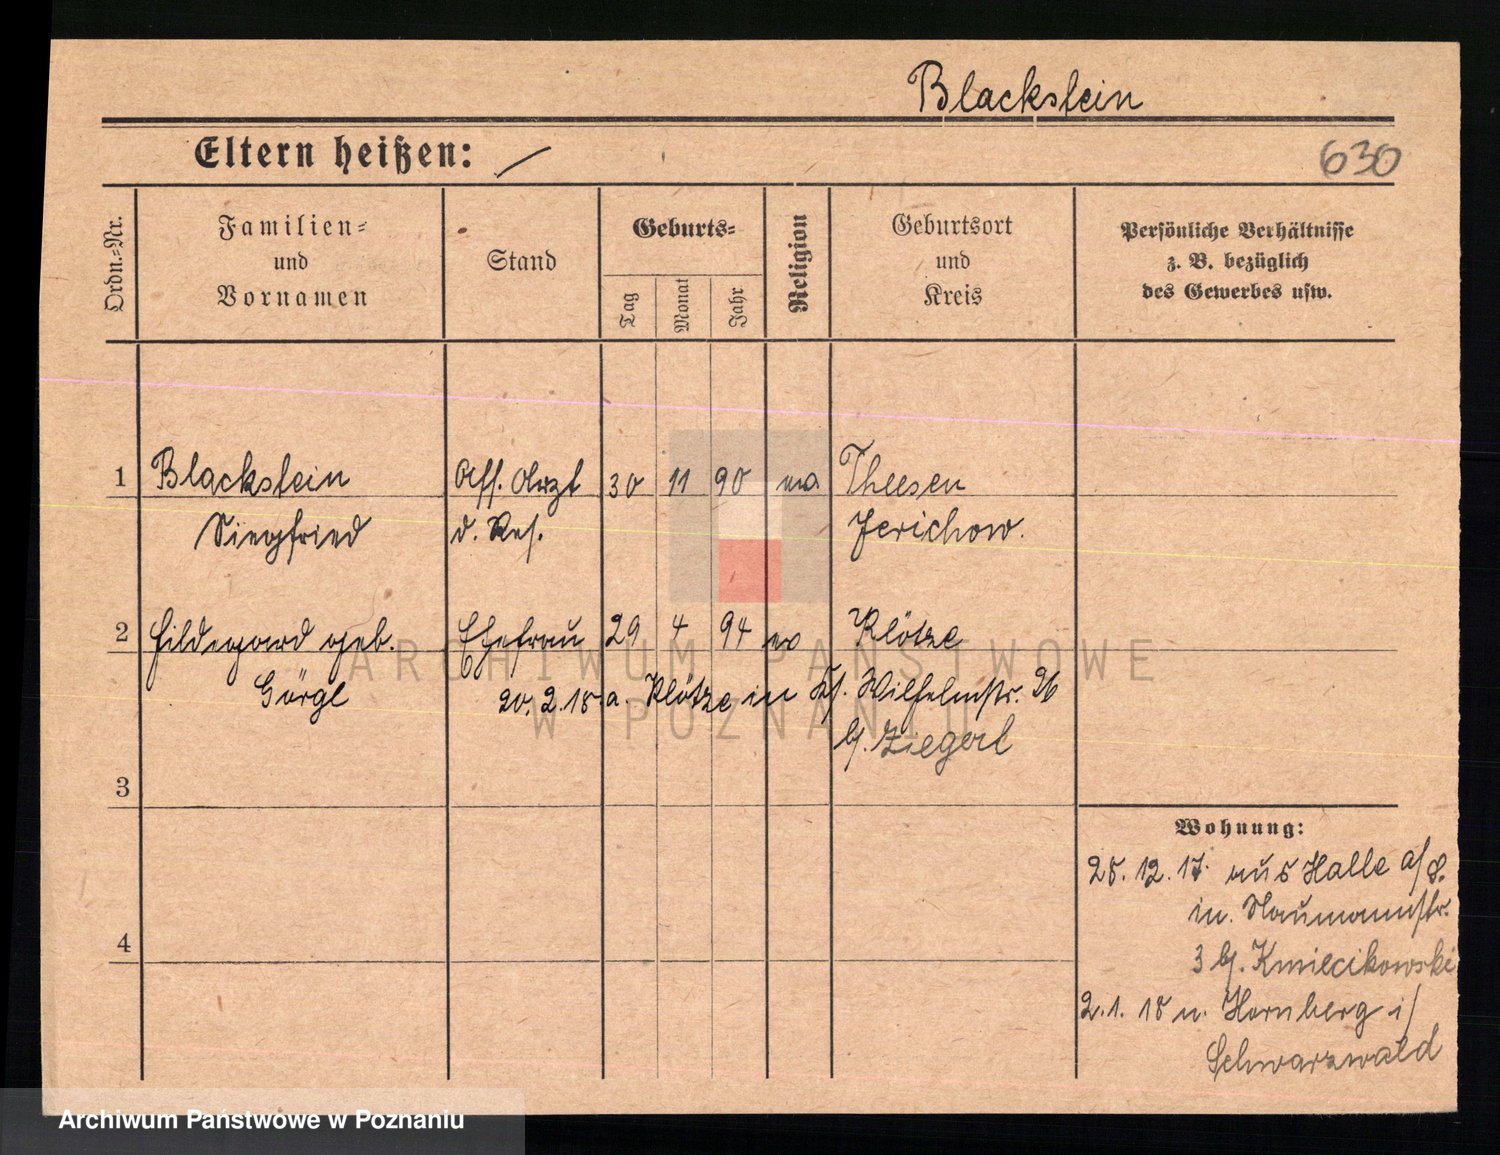 Blackstein
Eltern heißen: /
630
Ordn.-Nr.
Familien-
und
Vornamen
Stand
Geburts-
Tag
Monat
Jahr
Religion
Geburtsort
und
Kreis
Persönliche Verhältnisse
z. B. bezüglich
des Gewerbes usw.
1 Blackstein Ass. Arzt 30 11 90 Theesen
Siegfried d. Res. Jerichow.
2 Hildegard geb. Ehefrau 29 4 94 ev Klötze
Görgl 20. 2. 18 a. Klötze in Wilhelmstr. 26
b/. Ziegert
3
Wohnung:
28. 12. 17. aus Halle a/S.
in. Naumannstr.
4
3 b/. Kmiecikowski
2. 1. 18 n. Hornberg i/
Schwarzwald
ARCHIWUM PAŃSTWOWE
W POZNANIU
Archiwum Państwowe w Poznaniu